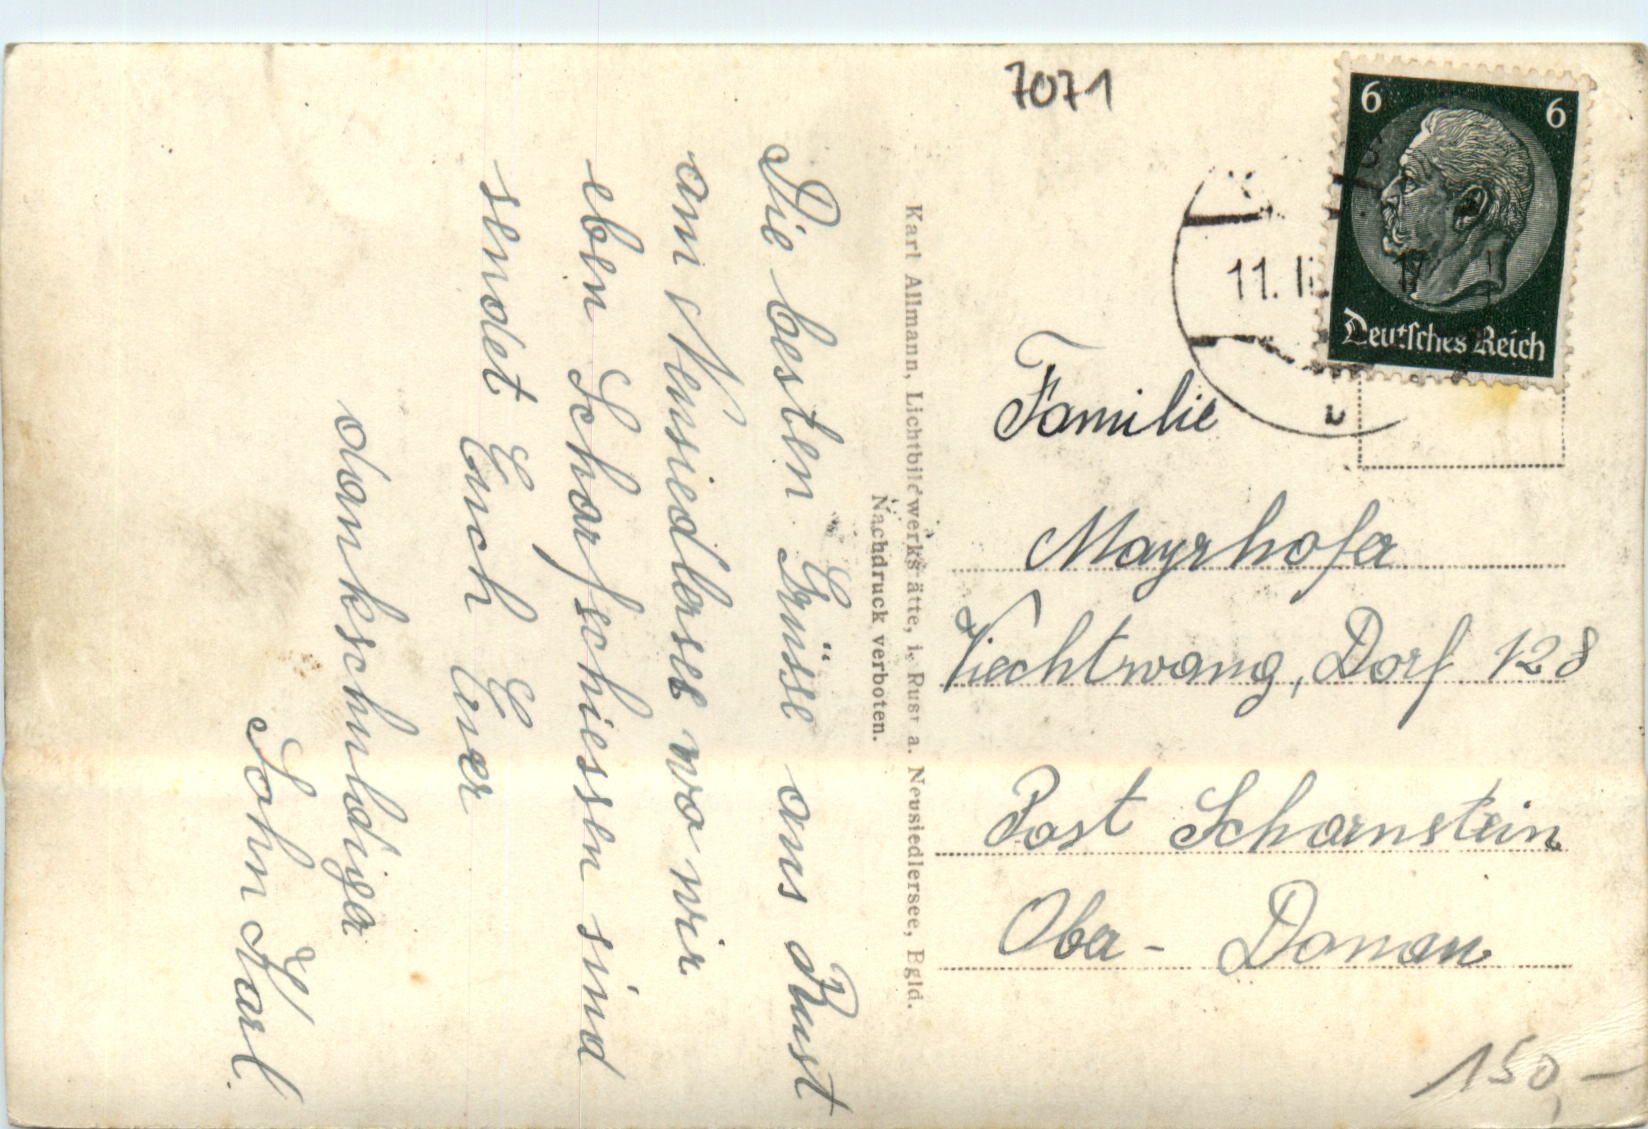 Die besten Grüsse aus Rust
am Neusiedlersee wo wir
eben Scharfschiessen sind
sendet Euch Euer
dankschuldiger
Sohn Karl.
Karl Allmann, Lichtbildwerkstätte, i. Rust a. Neusiedlersee, Bgld.
Nachdruck verboten.
7071
6 6
Deutsches Reich
11. II
17
b
Familie
Mayrhofer
Viechtwang, Dorf 128
Post Scharnstein
Ober-Donau
150,-